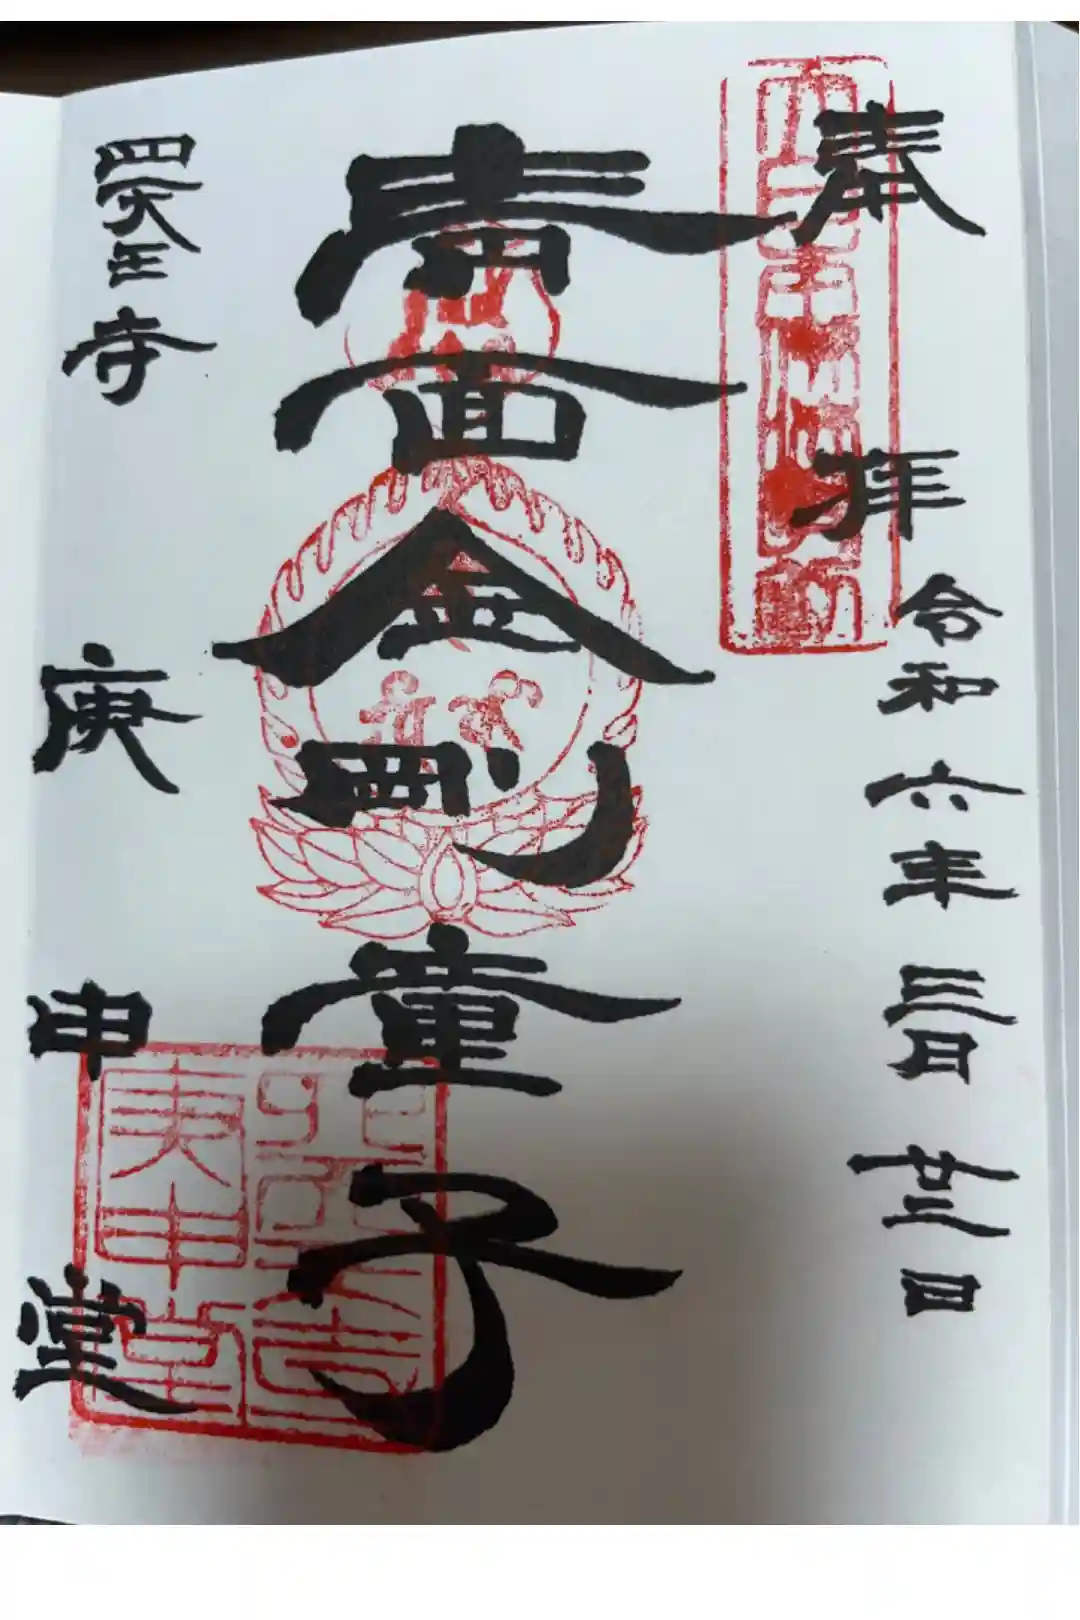 奉拝
令和六年三月廿三日
青面金剛童子
四天王寺
庚申堂
四天王寺
庚申堂